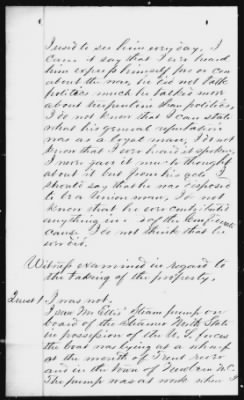 I used to see him every day, I
can't say that I ever heard
him express himself pro or con
about the war, he did not talk
politics much he talked more
about than politics,
I do not know that I can state
what his general reputation
was as a loyal man, I do not
know that I ever heard it spoken,
I never gave it much thought
about it but from his acts I
should say that he was supposed
to be a Union man, I do not
know that he ever contributed
anything in of the Confederate
cause I do not think that he
ever did.
Witness examined in regard to
the taking of the property.
Quest 1 I was not.
I saw Mr Ellis' Steam pump on
board of the Steamer North State
in possession of the U.S. forces
the boat was lying at a wharf
at the mouth of Trent river
and in the town of Newbern N.C.
The pump was at work when I